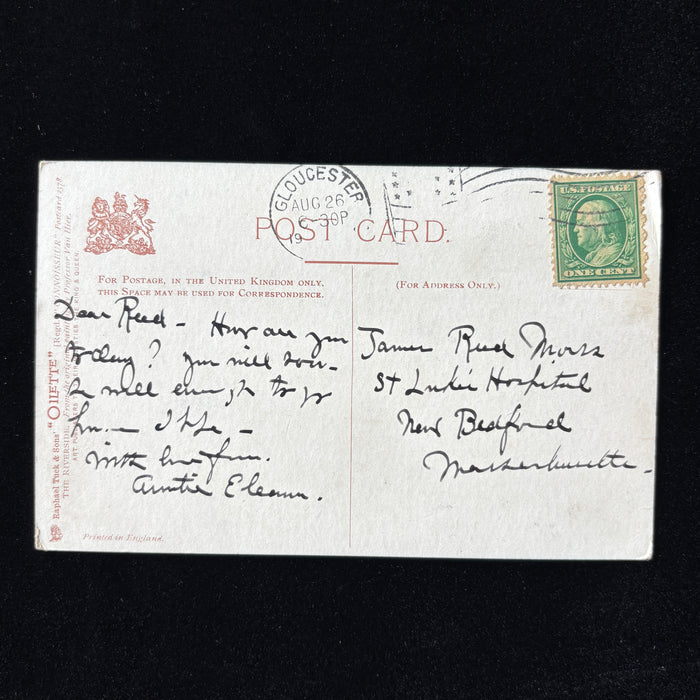 GLOUCESTER
AUG 26
6-30P
19
U.S. POSTAGE
ONE CENT
POST CARD.
FOR POSTAGE, IN THE UNITED KINGDOM ONLY,
THIS SPACE MAY BE USED FOR CORRESPONDENCE.
(FOR ADDRESS ONLY.)
Dear Reed - How are you
today? You will soon
be well enough to go
home I hope -
With love from
Auntie Eleanor.
James Reed Morss
St Luke's Hospital
New Bedford
Massachusetts.
Raphael Tuck & Sons' "OILETTE" [Regd.] CONNOISSEUR Postcard 2578.
THE RIVERSIDE. From the original painting by Professor Van Hier.
ART PUBLISHERS TO THEIR MAJESTIES THE KING & QUEEN.
Printed in England.